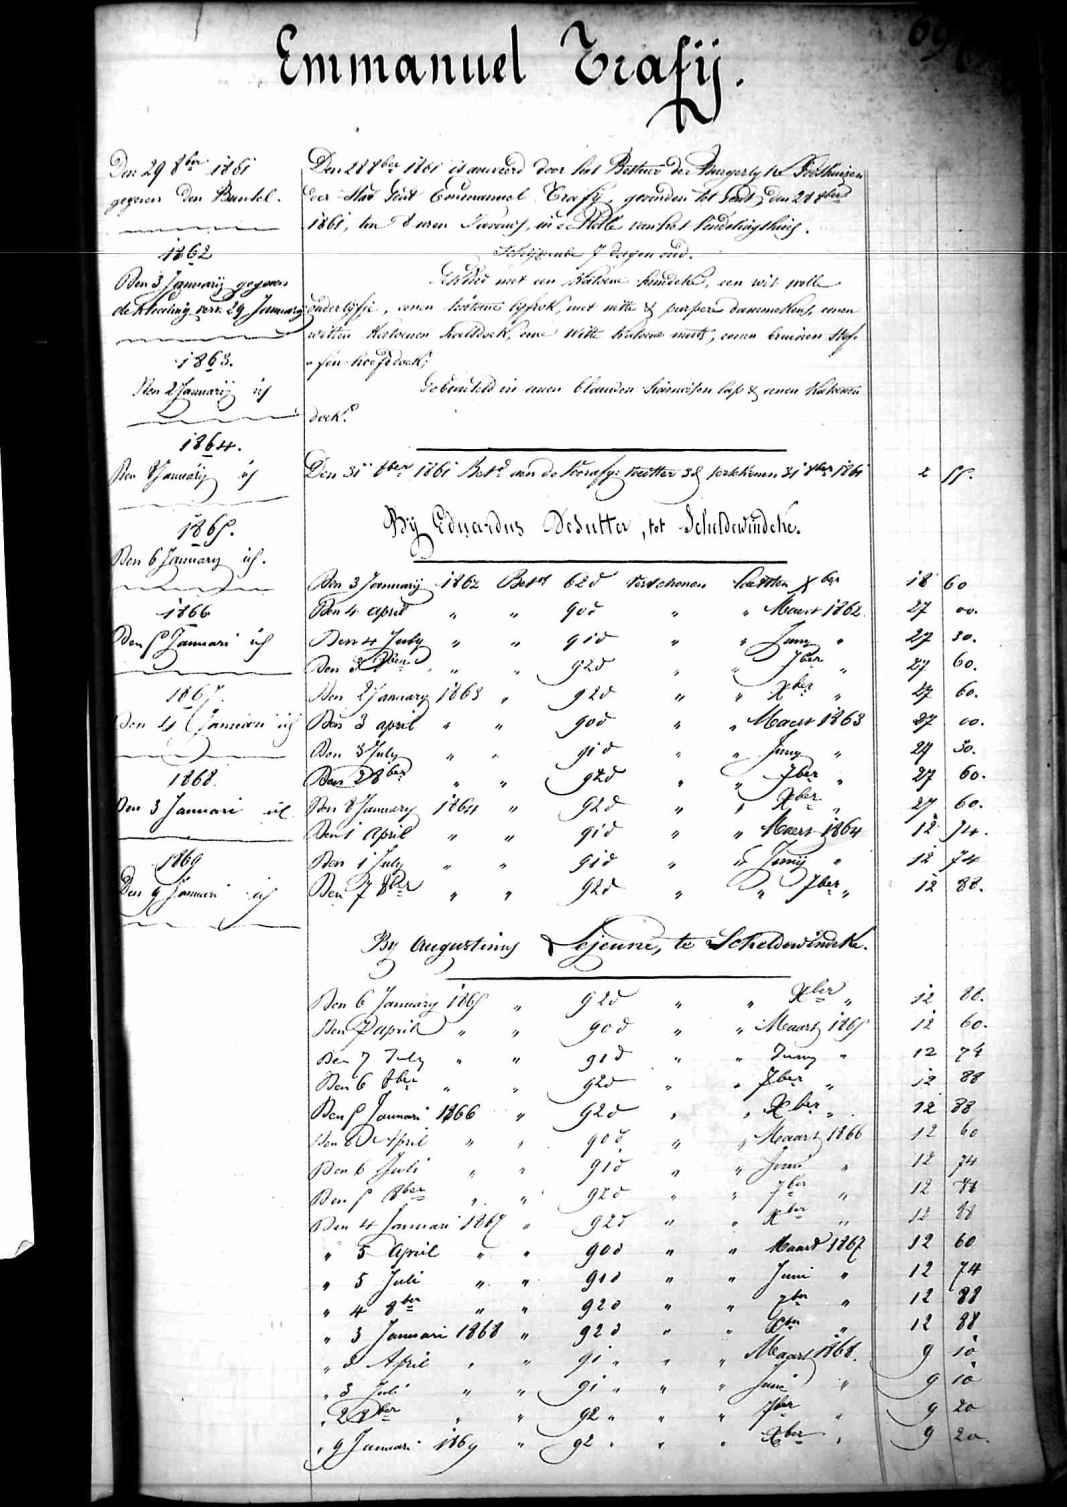 Emmanuel Trafij.
Den 29 8ber 1861
gegeven den Bundel.
1862
Den 3 Januarij gegeven
de kleeding verv. 29 January
1863.
Den 2 Januarij id
1864.
Den 8 January id
1865.
Den 6 January id.
1866
Den 5 Januari id
1867.
Den 4 Januari id
1868.
Den 3 Januari id
1869
Den 9 Januari id
Den 28 8ber 1861 is aenveerd door het Bestuur der Burgerlyke Godshuizen
der Stad Gent Emmanuel Trafij, gevonden tot Gent, den 28 8ber
1861, ten uren 's avonds, in de Rolle van het Vindelinghuis.
Schijnende 7 dagen oud.
Gekleed met een katoene hemdeke, een wit wolle
onderlyfje, eenen katoene lyfrok, met witte & purpere dammekens, eenen
witten katoenen halsdoek, eene witte katoene muts, eenen bruinen
hoofdoek;
Gebundeld in eenen blauwen saaietten en eenen katoenen
doek.
Den 31 8ber 1861 Bet. aen de Voorafge. voedster 3d verschenen 31 8ber 1861 2 55.
Bij Eduardus Desutter, tot Scheldewindeke.
Den 3 Januarij 1862 Bet. 62d verschenen laatsten Xber 18 60
Den 4 april " " 90d " " Maert 1862 27 00.
Den 4 July " " 91d " " Juny " 27 30.
Den 3 8ber " " 92d " " 7ber " 27 60.
Den 2 January 1863 " 92d " " Xber " 27 60.
Den 3 april " " 90d " " Maert 1863 27 00.
Den 3 July " " 91d " " Juny " 27 30.
Den 2 8ber " " 92d " " 7ber " 27 60.
Den 8 January 1864 " 92d " " Xber " 27 60.
Den 1 April " " 91d " " Maert 1864 12 74.
Den 1 July " " 91d " " Junij " 12 74
Den 7 8ber " " 92d " " 7ber " 12 88.
By Augustinus Lejeune, te Scheldewindeke.
Den 6 January 1865 " 92d " " Xber " 12 88.
Den 7 april " " 90d " " Maart 1865 12 60.
Den 7 July " " 91d " " Juny " 12 74
Den 6 8ber " " 92d " " 7ber " 12 88
Den 5 Januari 1866 " 92d " " Xber " 12 88
Den April " " 90d " " Maart 1866 12 60
Den 6 Juli " " 91d " " Juni " 12 74
Den 5 8ber " " 92d " " 7ber " 12 88
Den 4 Januari 1867 " 92d " " Xber " 12 88
" 5 April " " 90d " " Maart 1867 12 60
" 5 Juli " " 91d " " Juni " 12 74
" 4 8ber " " 92d " " 7ber " 12 88
" 3 Januari 1868 " 92d " " Xber " 12 88
" 3 April " " 91 " " " Maart 1868. 9 10
" 3 Juli " " 91 " " " Juni " 9 10
" 2 8ber " " 92 " " " 7ber " 9 20
" 9 Januari 1869 " 92 " " " Xber " 9 20.